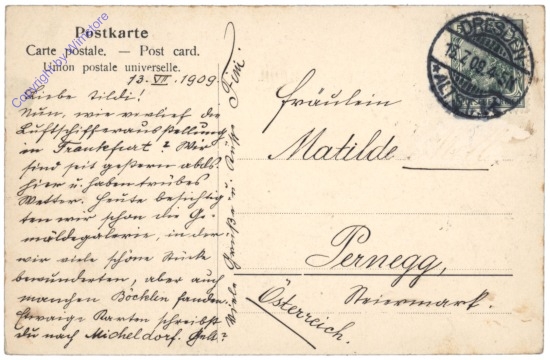 Postkarte
Carte postale. — Post card.
Union postale universelle.
Copyright by Winstore
13. VII. 1909
Liebe Tildi!
Nun, wie verlief die
Luftschifferausstellung
in Frankfurt? Wir
sind seit gestern abds.
hier u. haben trübes
Wetter. Heute besichtig-
ten wir schon die Ge-
mäldegalerie, in der
wir viele schöne Stücke
bewunderten, aber auch
manchen Böcklin fanden.
Etwaige Karten schreibst
du nach Micheldorf. Gelt?
Viele Grüße u. Küsse
DRESDEN-
ALTST.
Fräulein
Matilde
Pernegg,
Steiermark.
Österreich.